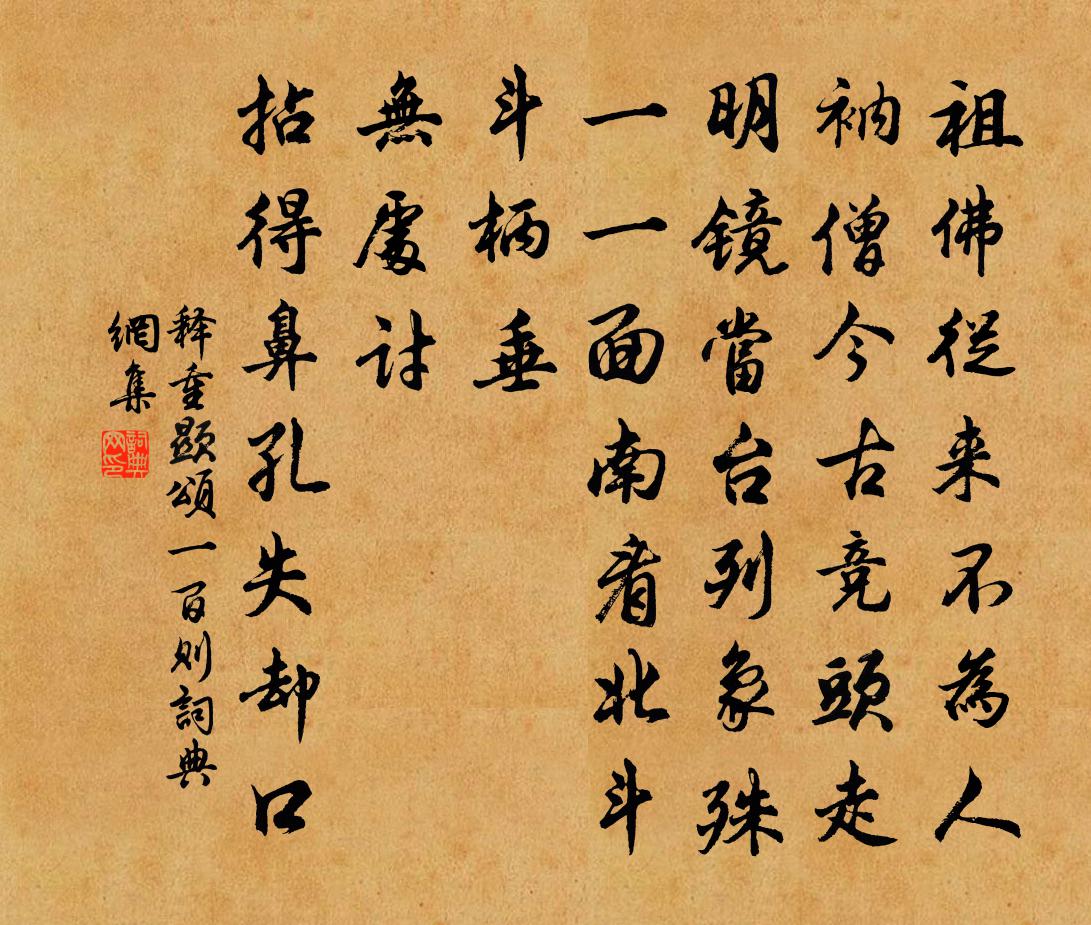 祖佛從来不為人
衲僧今古竞頭走
明镜當台列象殊
一一面南看北斗
斗柄垂
無處讨
拈得鼻孔失却口
释重顯頌一百则詞典
網集
詞典
网印